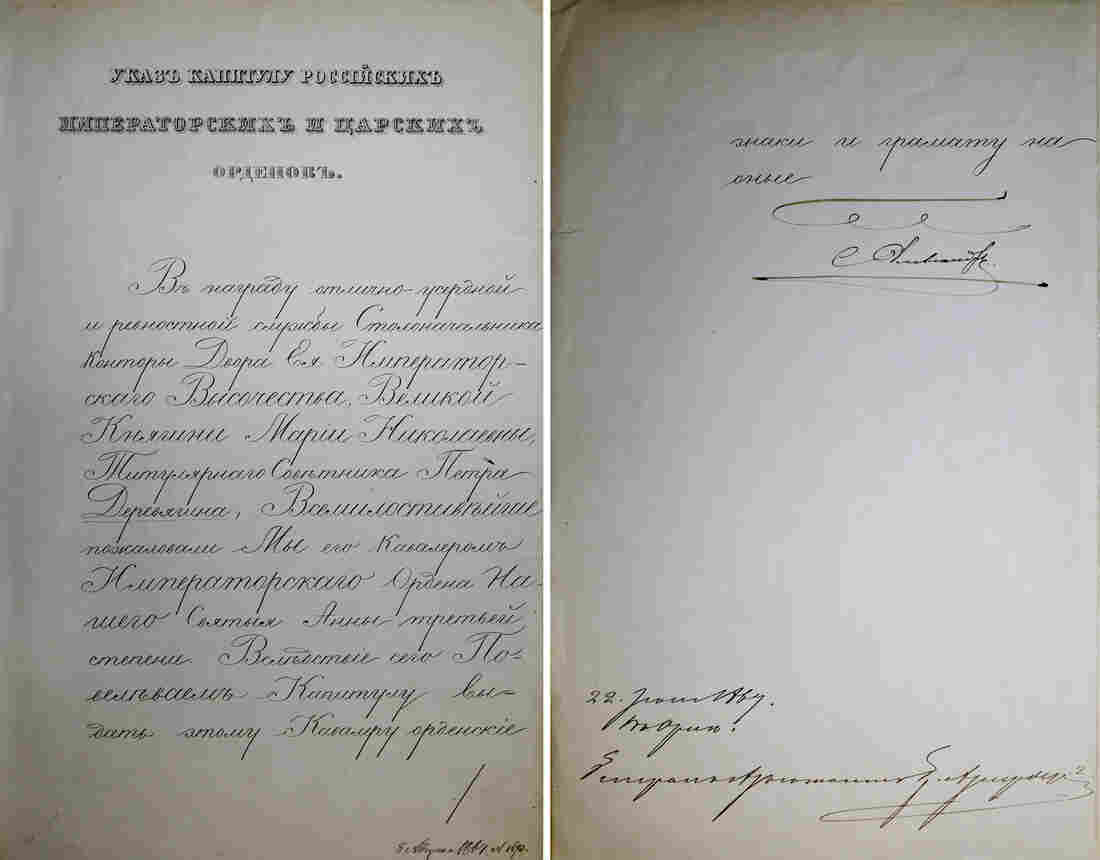 УКАЗЪ КАПИТУЛУ РОССІЙСКИХЪ
ИМПЕРАТОРСКИХЪ И ЦАРСКИХЪ
ОРДЕНОВЪ.
Въ награду отлично-усердной
и ревностной службы Столоначальника
Конторы Двора Ея Император-
скаго Высочества, Великой
Княгини Маріи Николаевны,
Титулярнаго Совѣтника Петра
Деревягина, Всемилостивѣйше
пожаловали Мы его Кавалеромъ
Императорскаго Ордена На-
шего Святыя Анны третьей
степени. Вслѣдствіе сего По-
велѣваемъ Капитулу вы-
дать этому Кавалеру орденскіе
знаки и грамату на
оные
22. Іюня 1867.